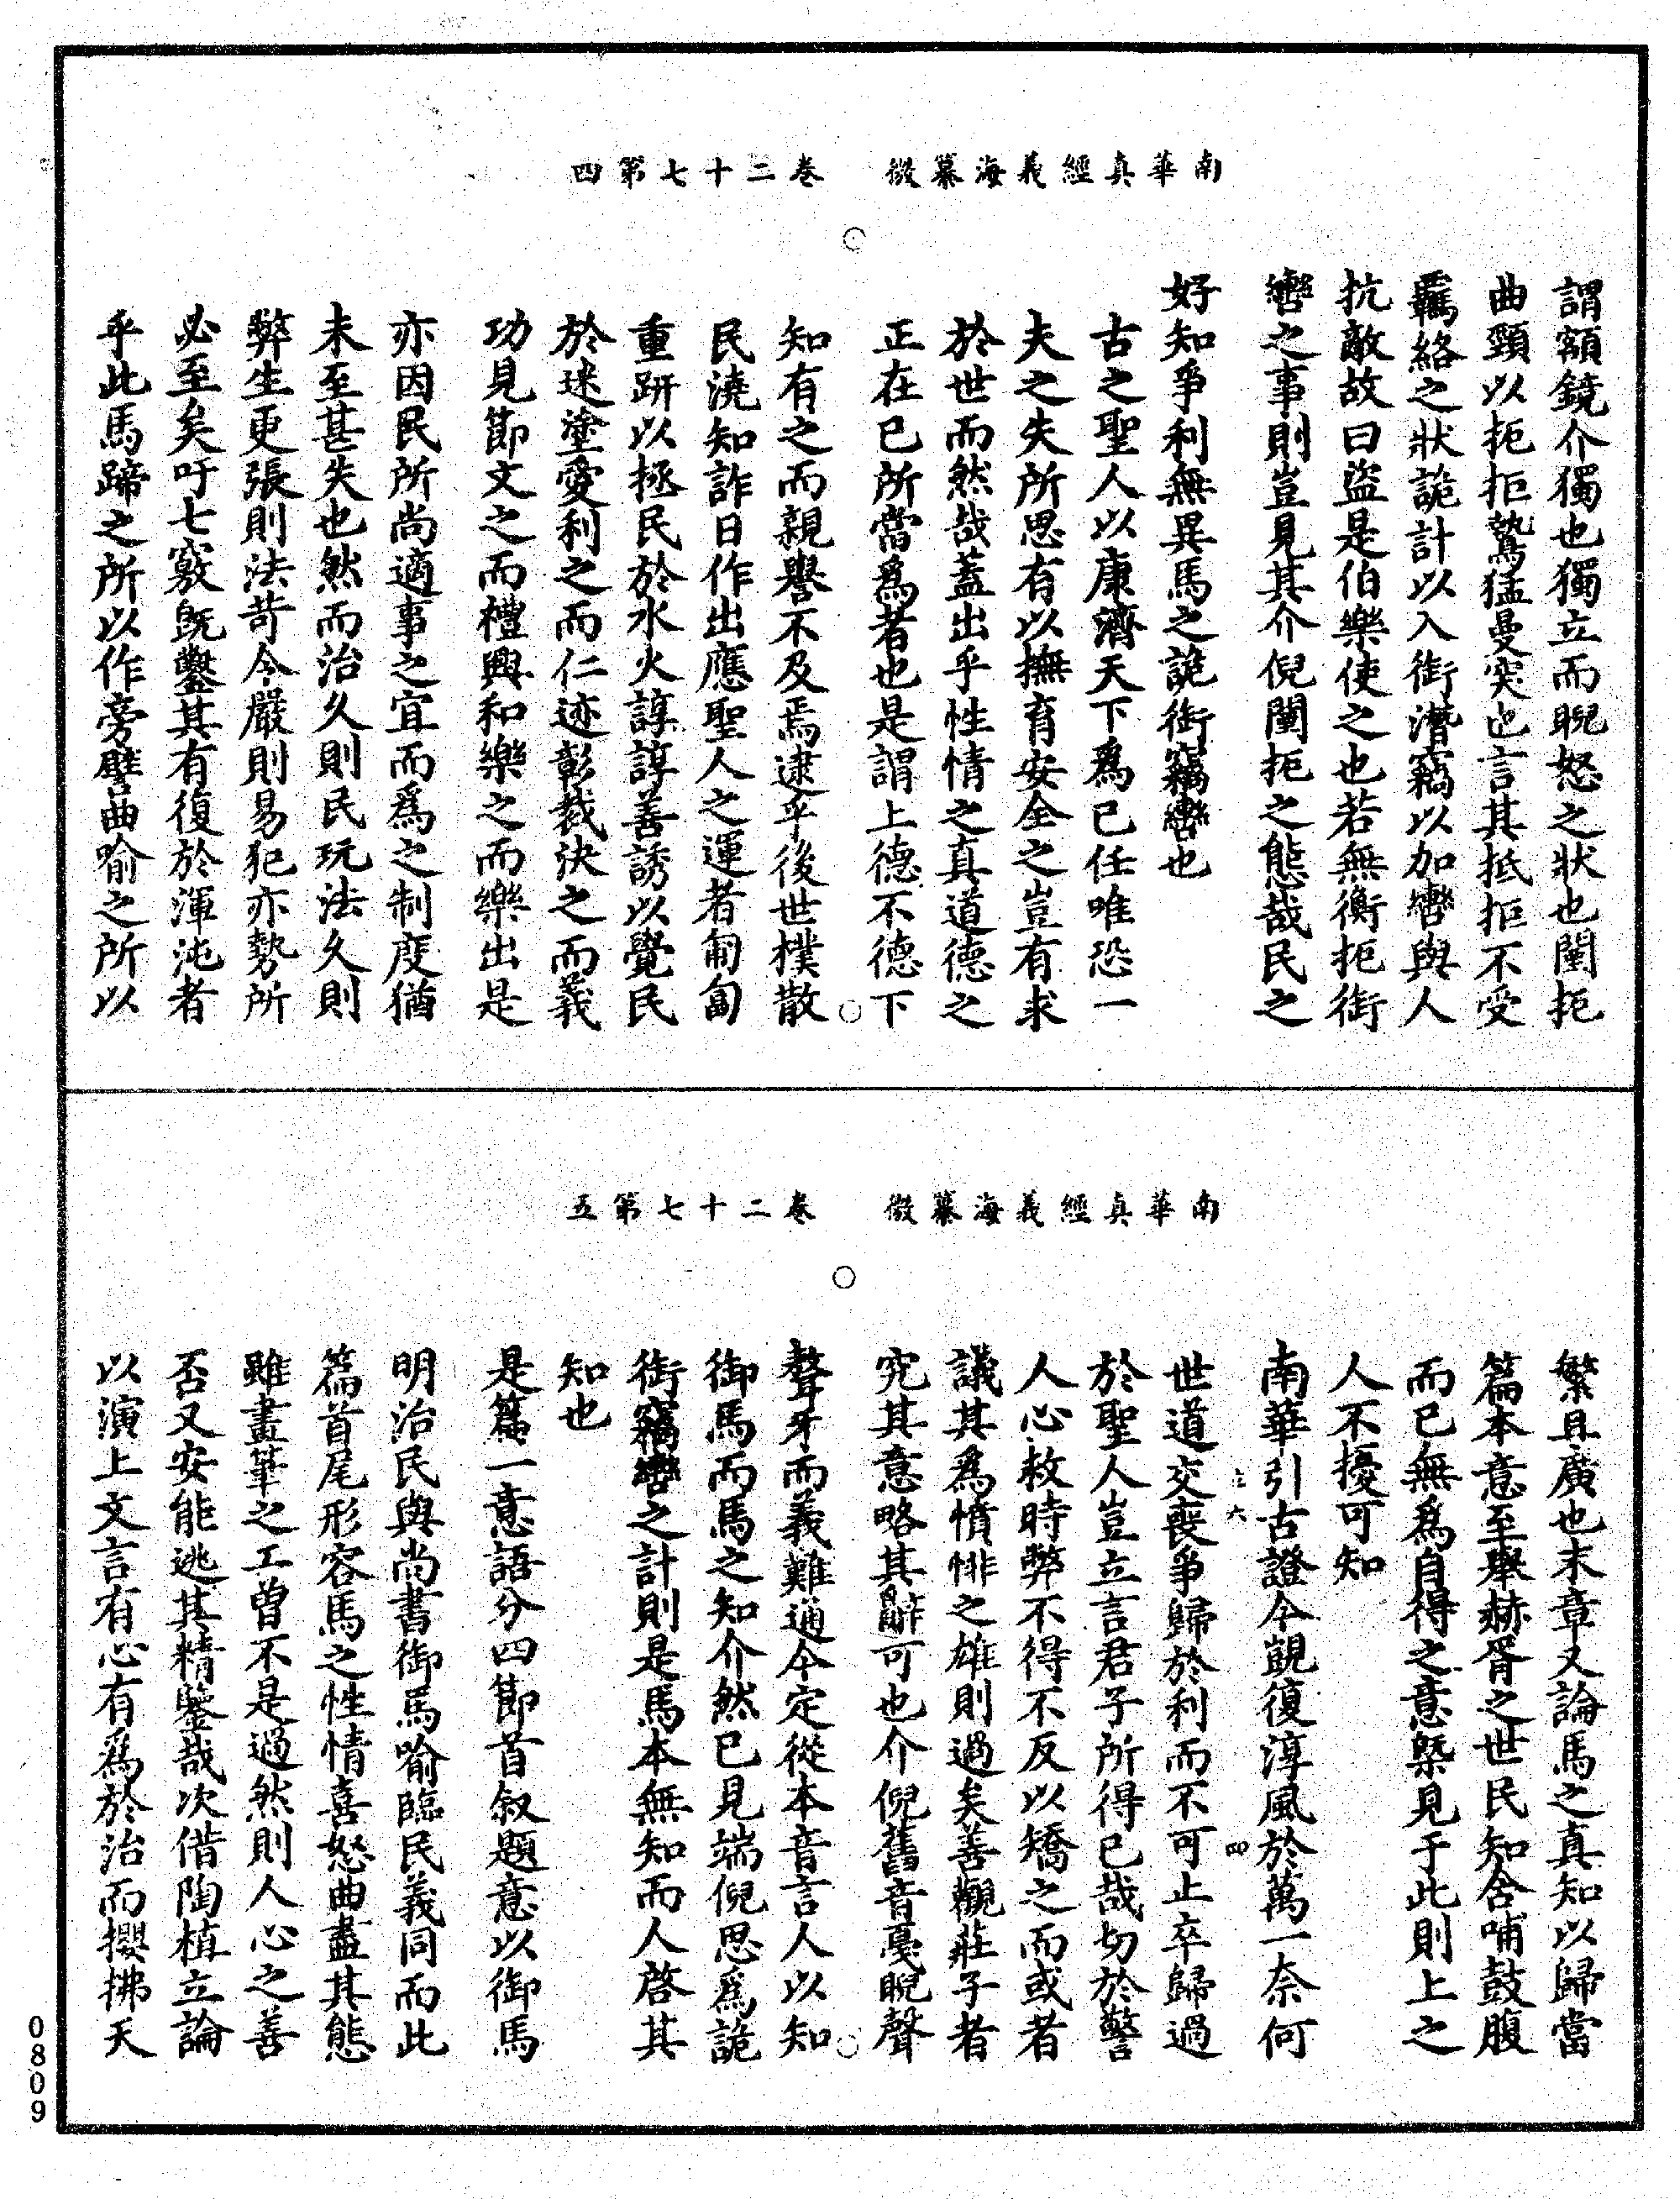 南華真經義海纂微　卷二十七第四
謂額鏡介獨也獨立而睨怒之狀也闉扼
曲頸以扼拒鷙猛曼突也言其抵拒不受
羈絡之狀詭計以入銜潛竊以加轡與人
抗敵故曰盜是伯樂使之也若無衡扼銜
轡之事則豈見其介倪闉扼之態哉民之
好知爭利無異馬之詭銜竊轡也
古之聖人以康濟天下爲已任唯恐一
夫之失所思有以撫育安全之豈有求
於世而然哉蓋出乎性情之真道德之
正在已所當爲者也是謂上德不德下
知有之而親譽不及焉逮乎後世樸散
民澆知詐日作出應聖人之運者匍匐
重趼以拯民於水火諄諄善誘以覺民
於迷塗愛利之而仁迹彰裁決之而義
功見節文之而禮興和樂之而樂出是
亦因民所尚適事之宜而爲之制度猶
未至甚失也然而治久則民玩法久則
弊生更張則法苛令嚴則易犯亦勢所
必至矣吁七竅既鑿其有復於渾沌者
乎此馬蹄之所以作旁譬曲喻之所以
南華真經義海纂微　卷二十七第五
繁且廣也末章又論馬之真知以歸當
篇本意至舉赫胥之世民知含哺鼓腹
而已無爲自得之意槩見于此則上之
人不擾可知
南華引古證今覬復淳風於萬一奈何
世道交喪爭歸於利而不可止卒歸過
於聖人豈立言君子所得已哉切於警
人心救時弊不得不反以矯之而或者
議其爲憤悱之雄則過矣善觀莊子者
究其意略其辭可也介倪舊音戛睨聲
聱牙而義難通今定從本音言人以知
御馬而馬之知介然已見端倪思爲詭
銜竊轡之計則是馬本無知而人啓其
知也
是篇一意語分四節首叙題意以御馬
明治民與尚書御馬喻臨民義同而此
篇首尾形容馬之性情喜怒曲盡其態
雖畫筆之工曾不是過然則人心之善
否又安能逃其精鑒哉次借陶植立論
以演上文言有心有爲於治而攖拂天
0809